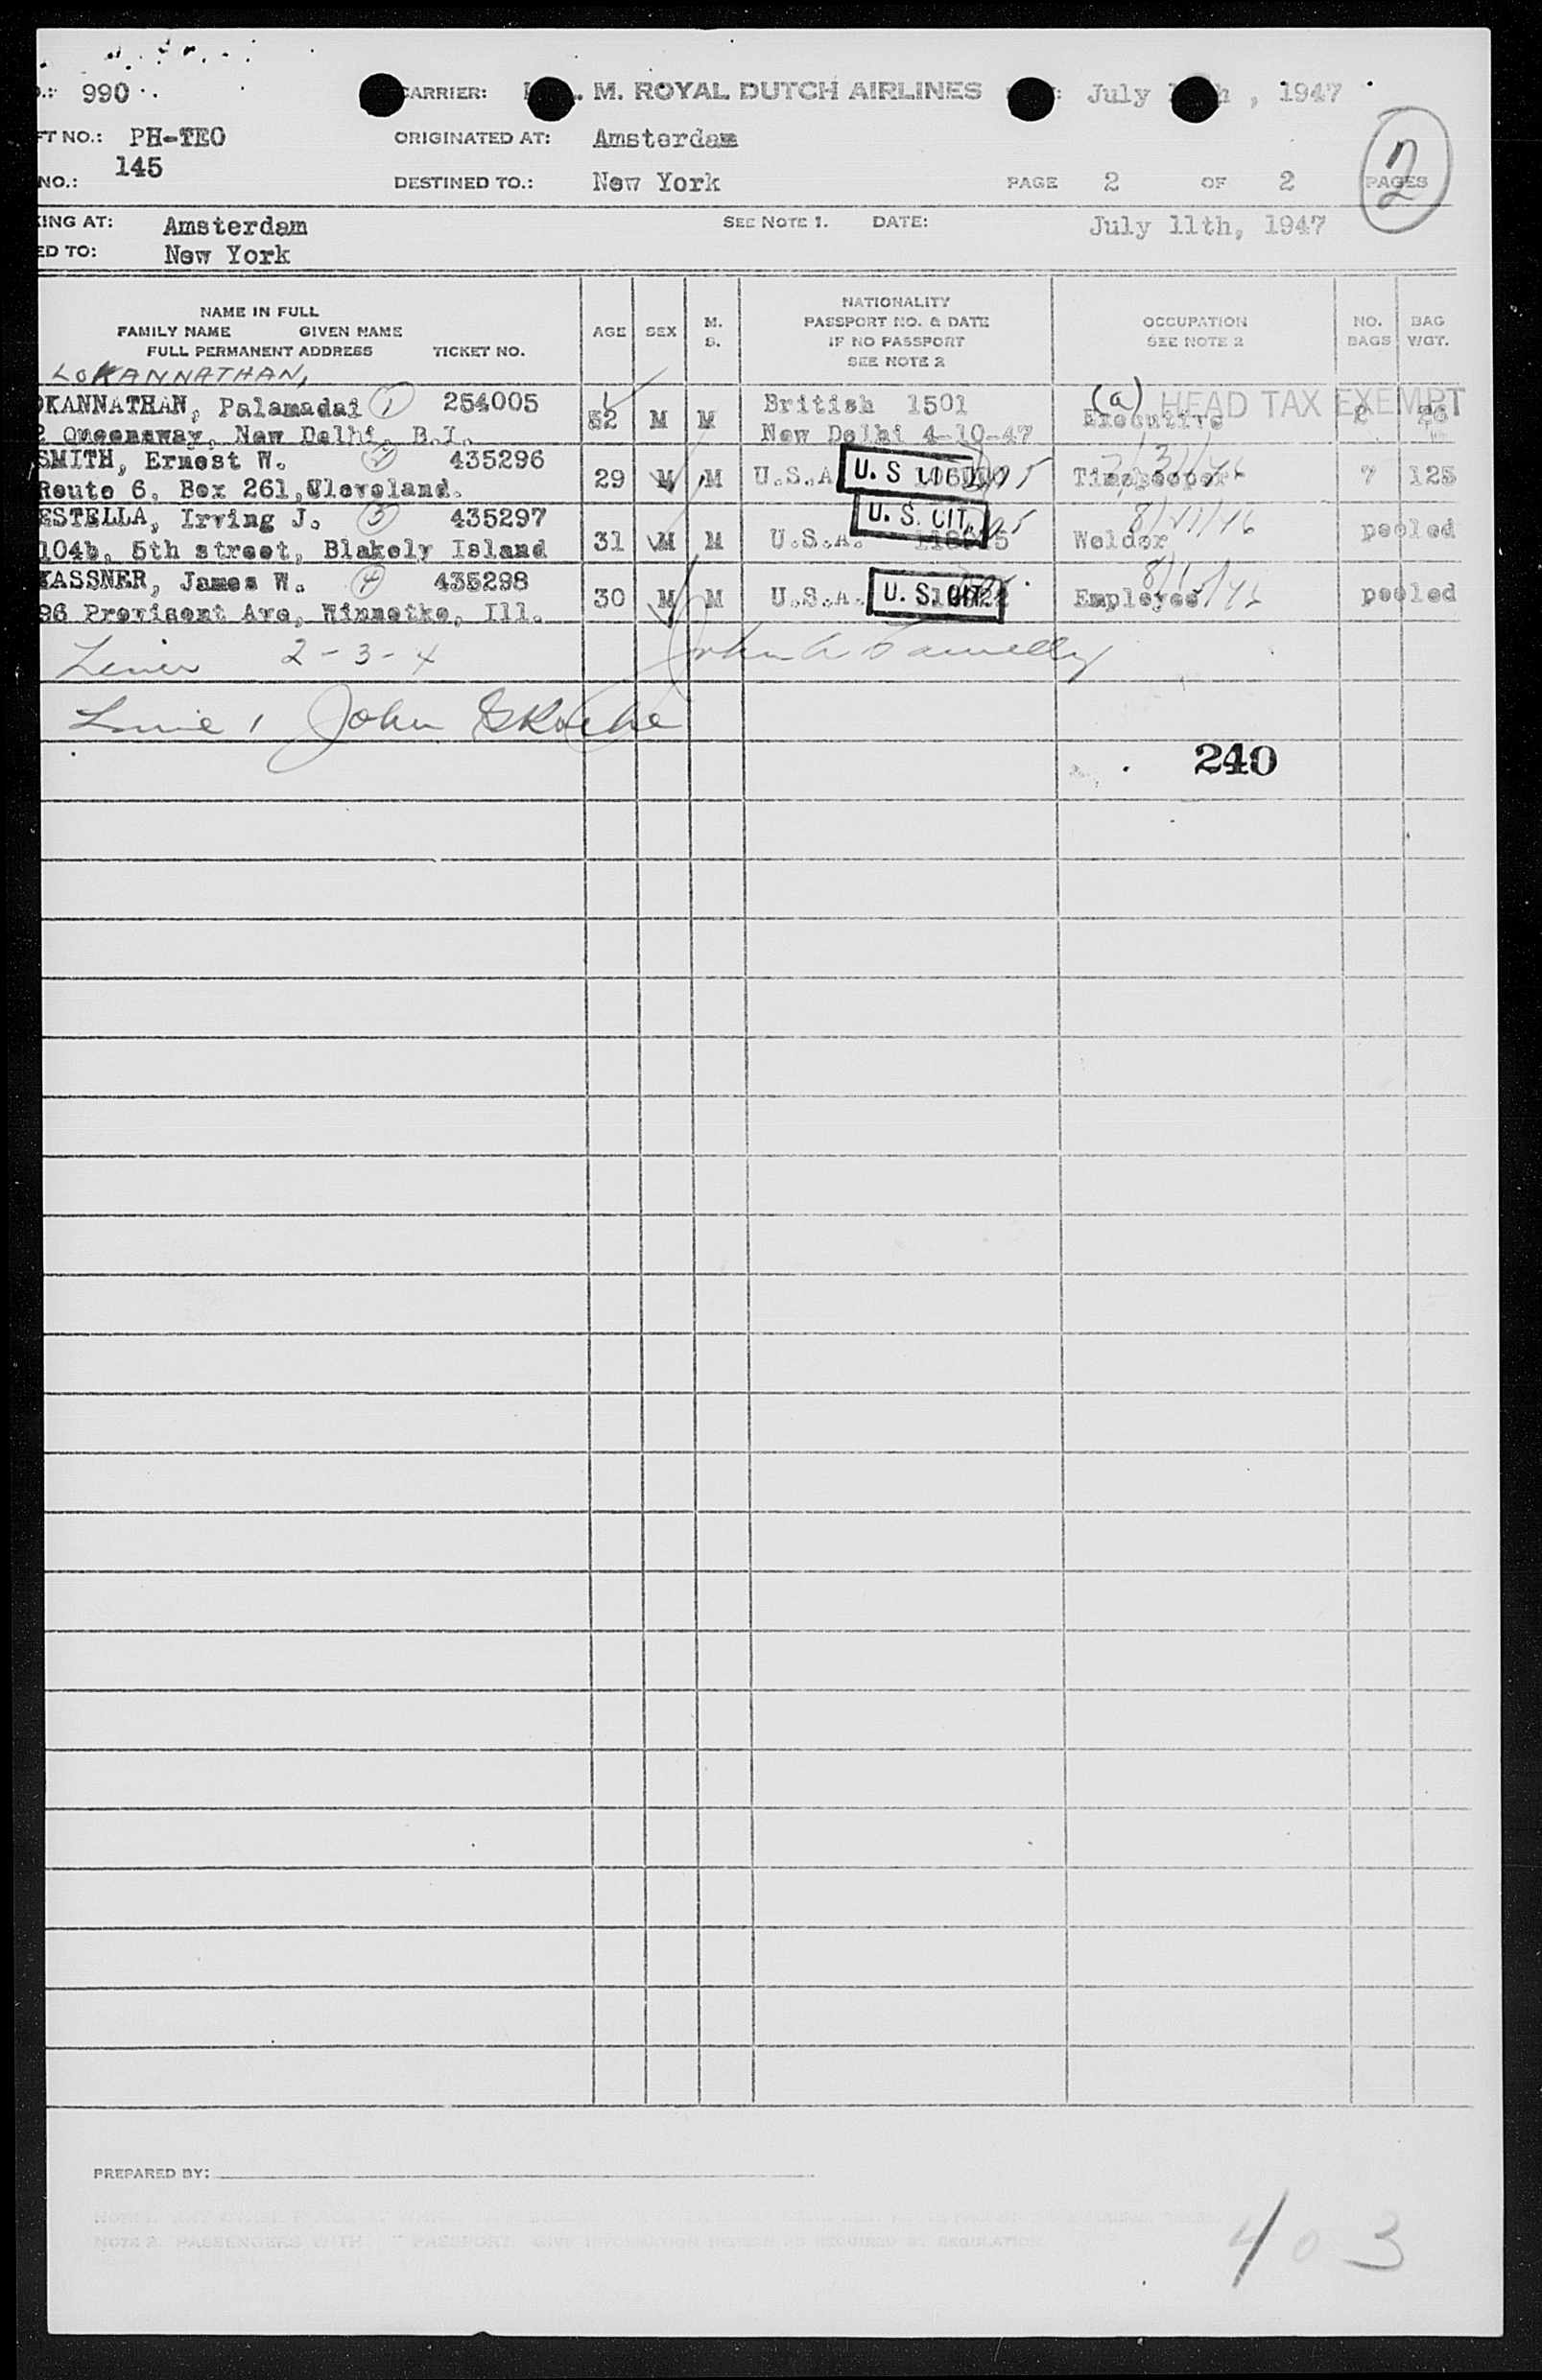 990 CARRIER: M. ROYAL DUTCH AIRLINES July , 1947
FT NO.: PH-TEO ORIGINATED AT: Amsterdam
NO.: 145 DESTINED TO.: New York PAGE 2 OF 2 PAGES 2
KING AT: Amsterdam SEE NOTE 1. DATE: July 11th, 1947
ED TO: New York
NAME IN FULL
FAMILY NAME GIVEN NAME
FULL PERMANENT ADDRESS TICKET NO.
AGE SEX M. S.
NATIONALITY
PASSPORT NO. & DATE
IF NO PASSPORT
SEE NOTE 2
OCCUPATION
SEE NOTE 2
NO. BAGS
BAG WGT.
LOKANNATHAN,
OKANNATHAN, Palamadai 1 254005 52 M M British 1501 (a) HEAD TAX EXEMPT Executive 2 26
2 Queensway, New Delhi, B.I. New Delhi 4-10-47
SMITH, Ernest W. 2 435296 29 M M U.S.A U. S Timekeeper 7 125
Route 6, Box 261, Cleveland.
ESTELLA, Irving J. 3 435297 31 M M U.S.A. U. S. CIT. Welder pooled
104b, 5th street, Blakely Island
KASSNER, James W. 4 435298 30 M M U.S.A. U. S. CIT. Employee pooled
96 Provisent Ave, Winnetke, Ill.
Lines 2-3-4 John
Line 1 John
240
PREPARED BY:
NOTE 2. PASSENGERS WITH PASSPORT GIVE INFORMATION
403